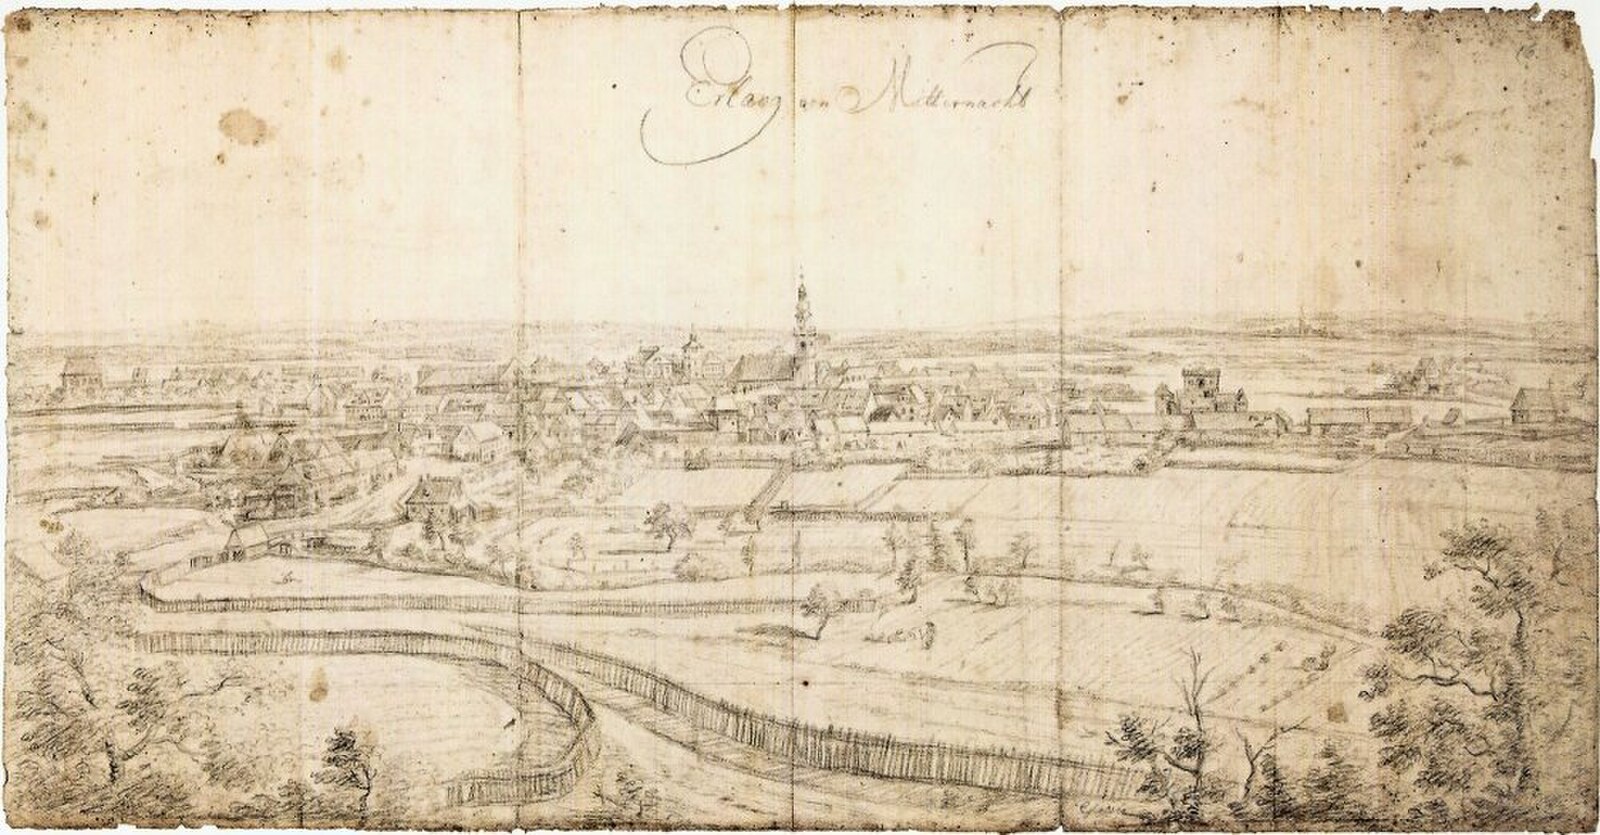 Erlang von Mitternacht